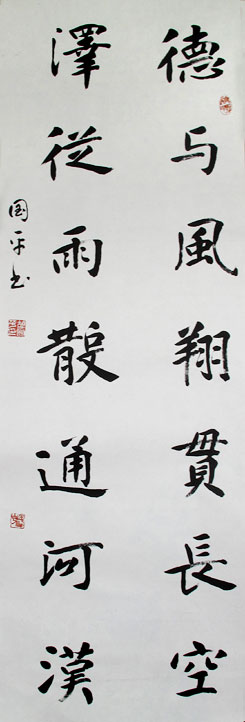 德与風翔貫長空
澤從雨散通河漢
国平书